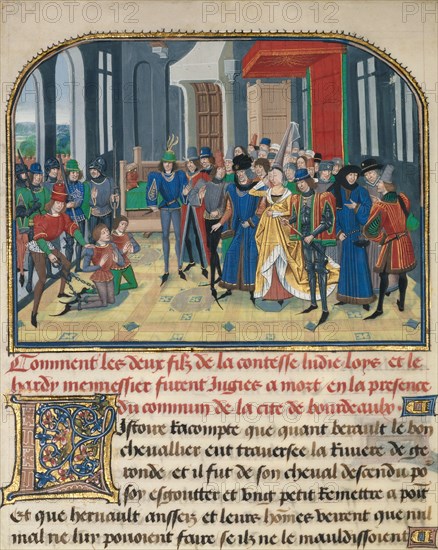 Comment les deux filz de la contesse ludie loys et le
hardy mennessier furent Jugies a mort en la presence
du commun de la cite de bourdeaulx
Istoire racompte que quant berault le bon
chevallier eut traversee la Riviere de ge
ronde et il fut de son cheval descendu po
soy esgoutter et ung petit remettre a poit
Et que hernault ansseiz et leurs hom̄es veirent que nul
mal ne luy pouoient faire se ilz ne le mauldissoient